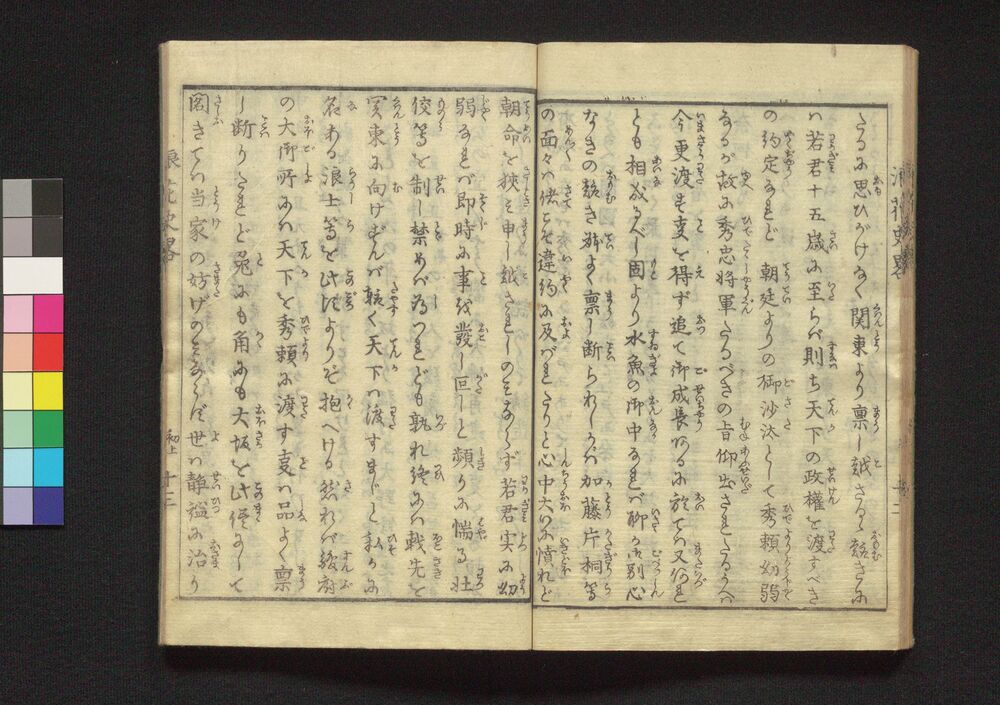 たるに思ひがけなく関東より禀し越さるゝ趣きに
ハ若君十五歳に至らバ則ち天下の政權を渡すべき
の約定なれど 朝廷よりの御沙汰として秀頼幼弱
なるが故に秀忠將軍たるべきの旨仰出されたるうへハ
今更渡す事を得ず追て御成長あるに於てハ又何れ
とも相成るべし固より水魚の御中なれバ聊か御別心
なきの趣き辨よく禀し断られしかバ加藤片桐等
の面々ハ偖こそ違約に及バれたりと心中大いに憤れど
朝命を挾ミ申し越されしのミならず若君実に幼
弱なれバ即時に事を發し叵しと頻りに惴る壮
佼等を制し禁めバ為つれども孰れ終にハ戟先を
関東に向けずんバ輙く天下ハ渡すまじと竊かに
名ある浪士等を此比よりぞ抱へける然れバ駿府
の大御所にハ天下を秀頼に渡す事ハ品よく禀
し断りたれど兎にも角にも大坂を此侭にして
閣きてハ当家の妨げのミならず世ハ静謐に治り
浪花史畧
初上
十三